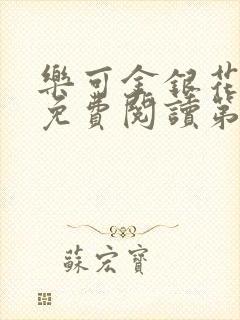 樂可金銀花
免費閱讀第
蘇宏寶